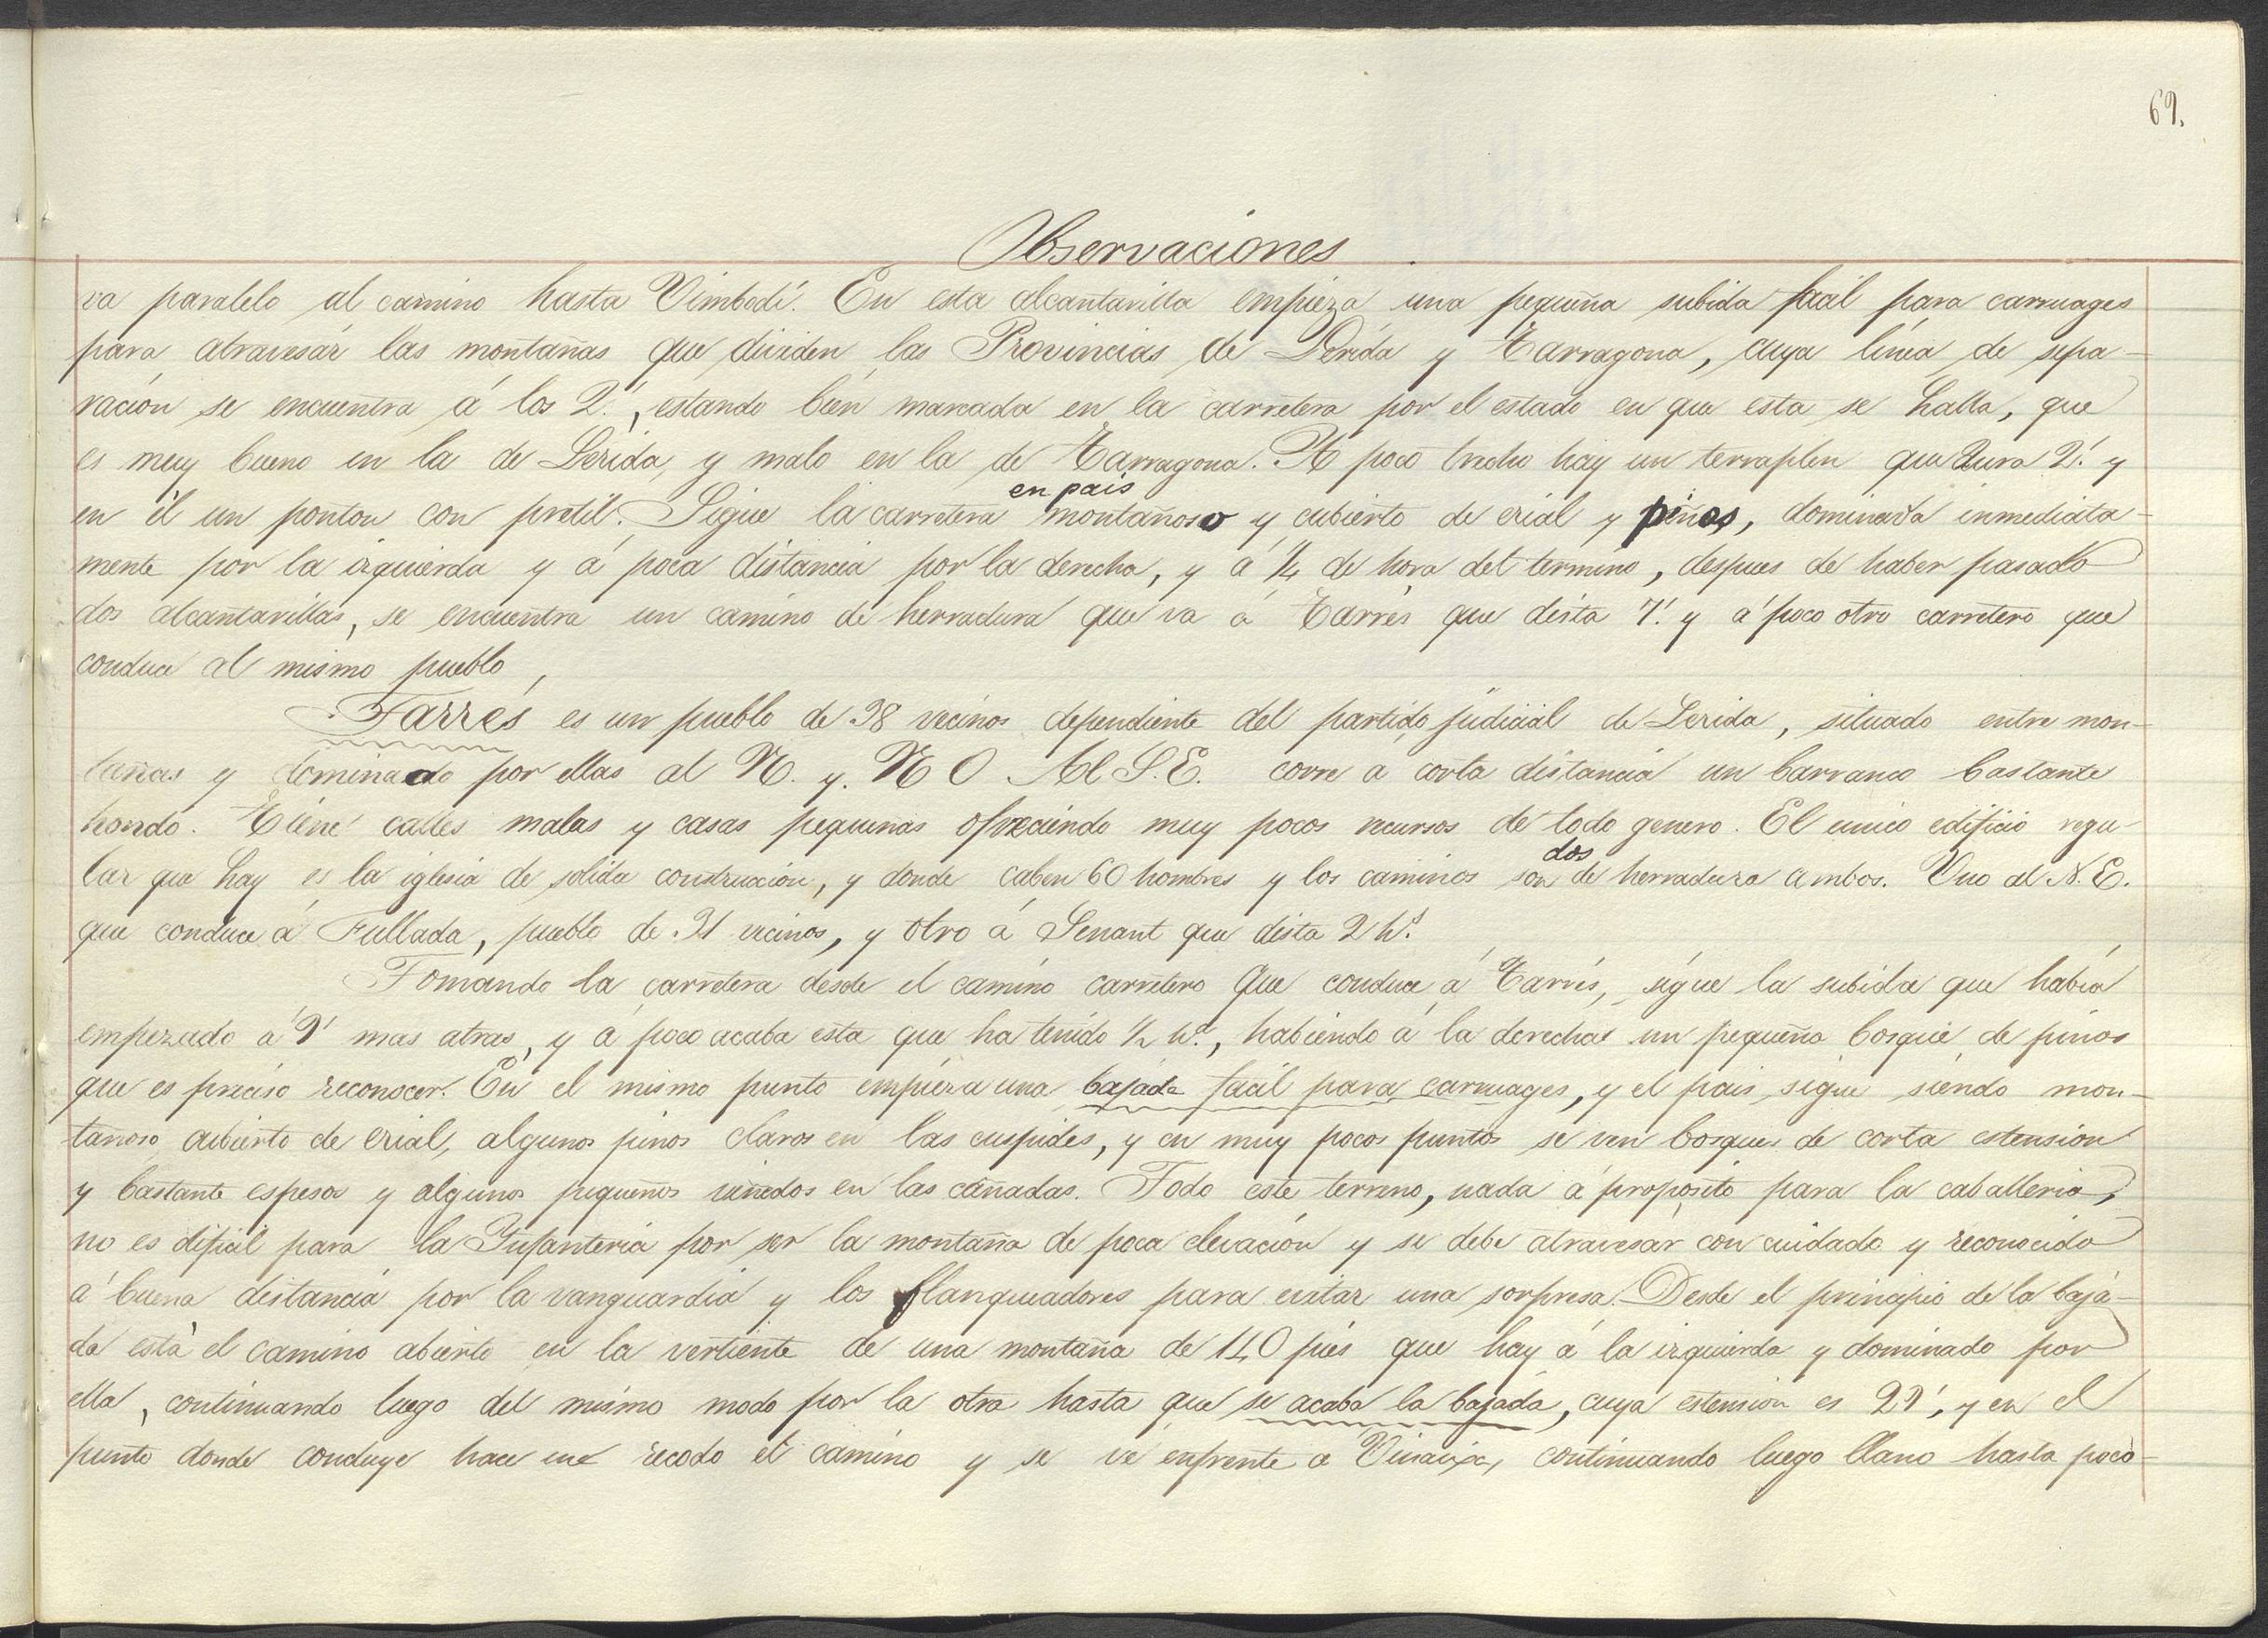 69.
Observaciones
va paralelo al camino hasta Vimbodí. En esta alcantarilla empieza una pequeña subida facil para carruages
para atravesár las montañas que dividen las Provincias de Lerida y Tarragona, cuya línea de sepa-
ración se encuentra á los 2', estando bien marcada en la carretera por el estado en que esta se halla, que
es muy bueno en la de Lerida, y malo en la de Tarragona. A poco trecho hay un terraplen que dura 2' y
en él un ponton con pretil. Sigue la carretera en pais montañoso y cubierto de erial y pinos, dominada inmediata-
mente por la izquierda y á poca distancia por la derecha, y á 1/4 de hora del termino, despues de haber pasado
dos alcantarillas, se encuentra un camino de herradura que va á Tarrés que dista 7' y á poco otro carretero que
conduce al mismo pueblo,
Tarrés es un pueblo de 38 vecinos dependiente del partido judicial de Lerida, situado entre mon-
tañas y dominado por ellas al N. y. N O Al S.E. corre á corta distancia un barranco bastante
hondo. Tiene calles malas y casas pequeñas ofreciendo muy pocos recursos de todo genero. El unico edificio regu-
lar que hay es la iglesia de solida construccion, y donde caben 60 hombres y los caminos son dos de herradura ambos. Uno al N.E.
que conduce á Fullada, pueblo de 31 vecinos, y otro á Senant que dista 2 hs.
Tomando la carretera desde el camino carretero que conduce á Tarrés, sigue la subida que habia
empezado á 9' mas atras, y á poco acaba esta que ha tenido 1/2 ha., habiendo á la derecha un pequeño bosque de pinos
que es preciso reconocer. En el mismo punto empieza una bajada facil para carruages, y el pais sigue siendo mon-
tañoso cubierto de erial, algunos pinos claros en las cuspides, y en muy pocos puntos se ven bosques de corta estension
y bastante espesos y algunos pequeños viñedos en las cañadas. Todo este terreno, nada á proposito para la caballeria,
no es dificil para la Infanteria por ser la montaña de poca elevación y se debe atravesar con cuidado y reconocido
á buena distancia por la vanguardia y los flanqueadores para evitar una sorpresa. Desde el principio de la baja-
da está el camino abierto en la vertiente de una montaña de 140 pies que hay á la izquierda y dominado por
ella, continuando luego del mismo modo por la otra hasta que se acaba la bajada, cuya estension es 29', y en el
punto donde concluye hace un recodo el camino y se vé enfrente a Vinaixa, continuando luego llano hasta poco-